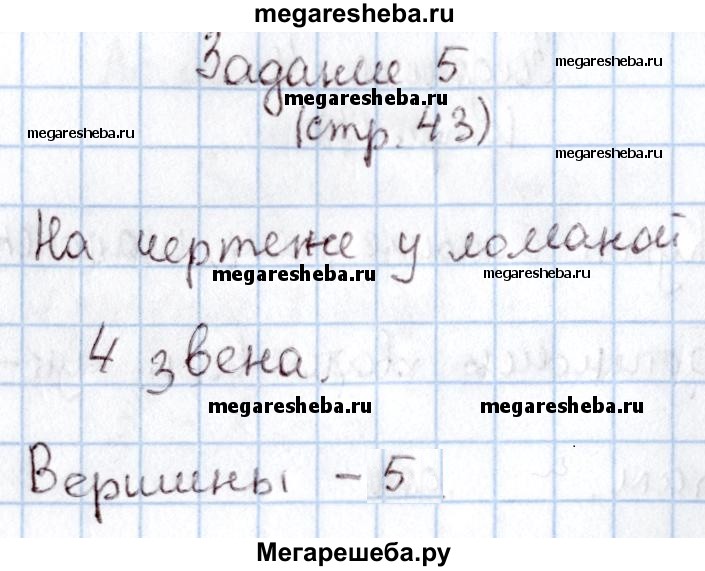 megaresheba.ru
Задание 5
megaresheba.ru
megaresheba.ru
(стр. 43)
megaresheba.ru
megaresheba.ru
На чертеже у ломаной
megaresheba.ru
megaresheba.ru
4 звена.
megaresheba.ru
megaresheba.ru
Вершины - 5
Мегарешеба.ру